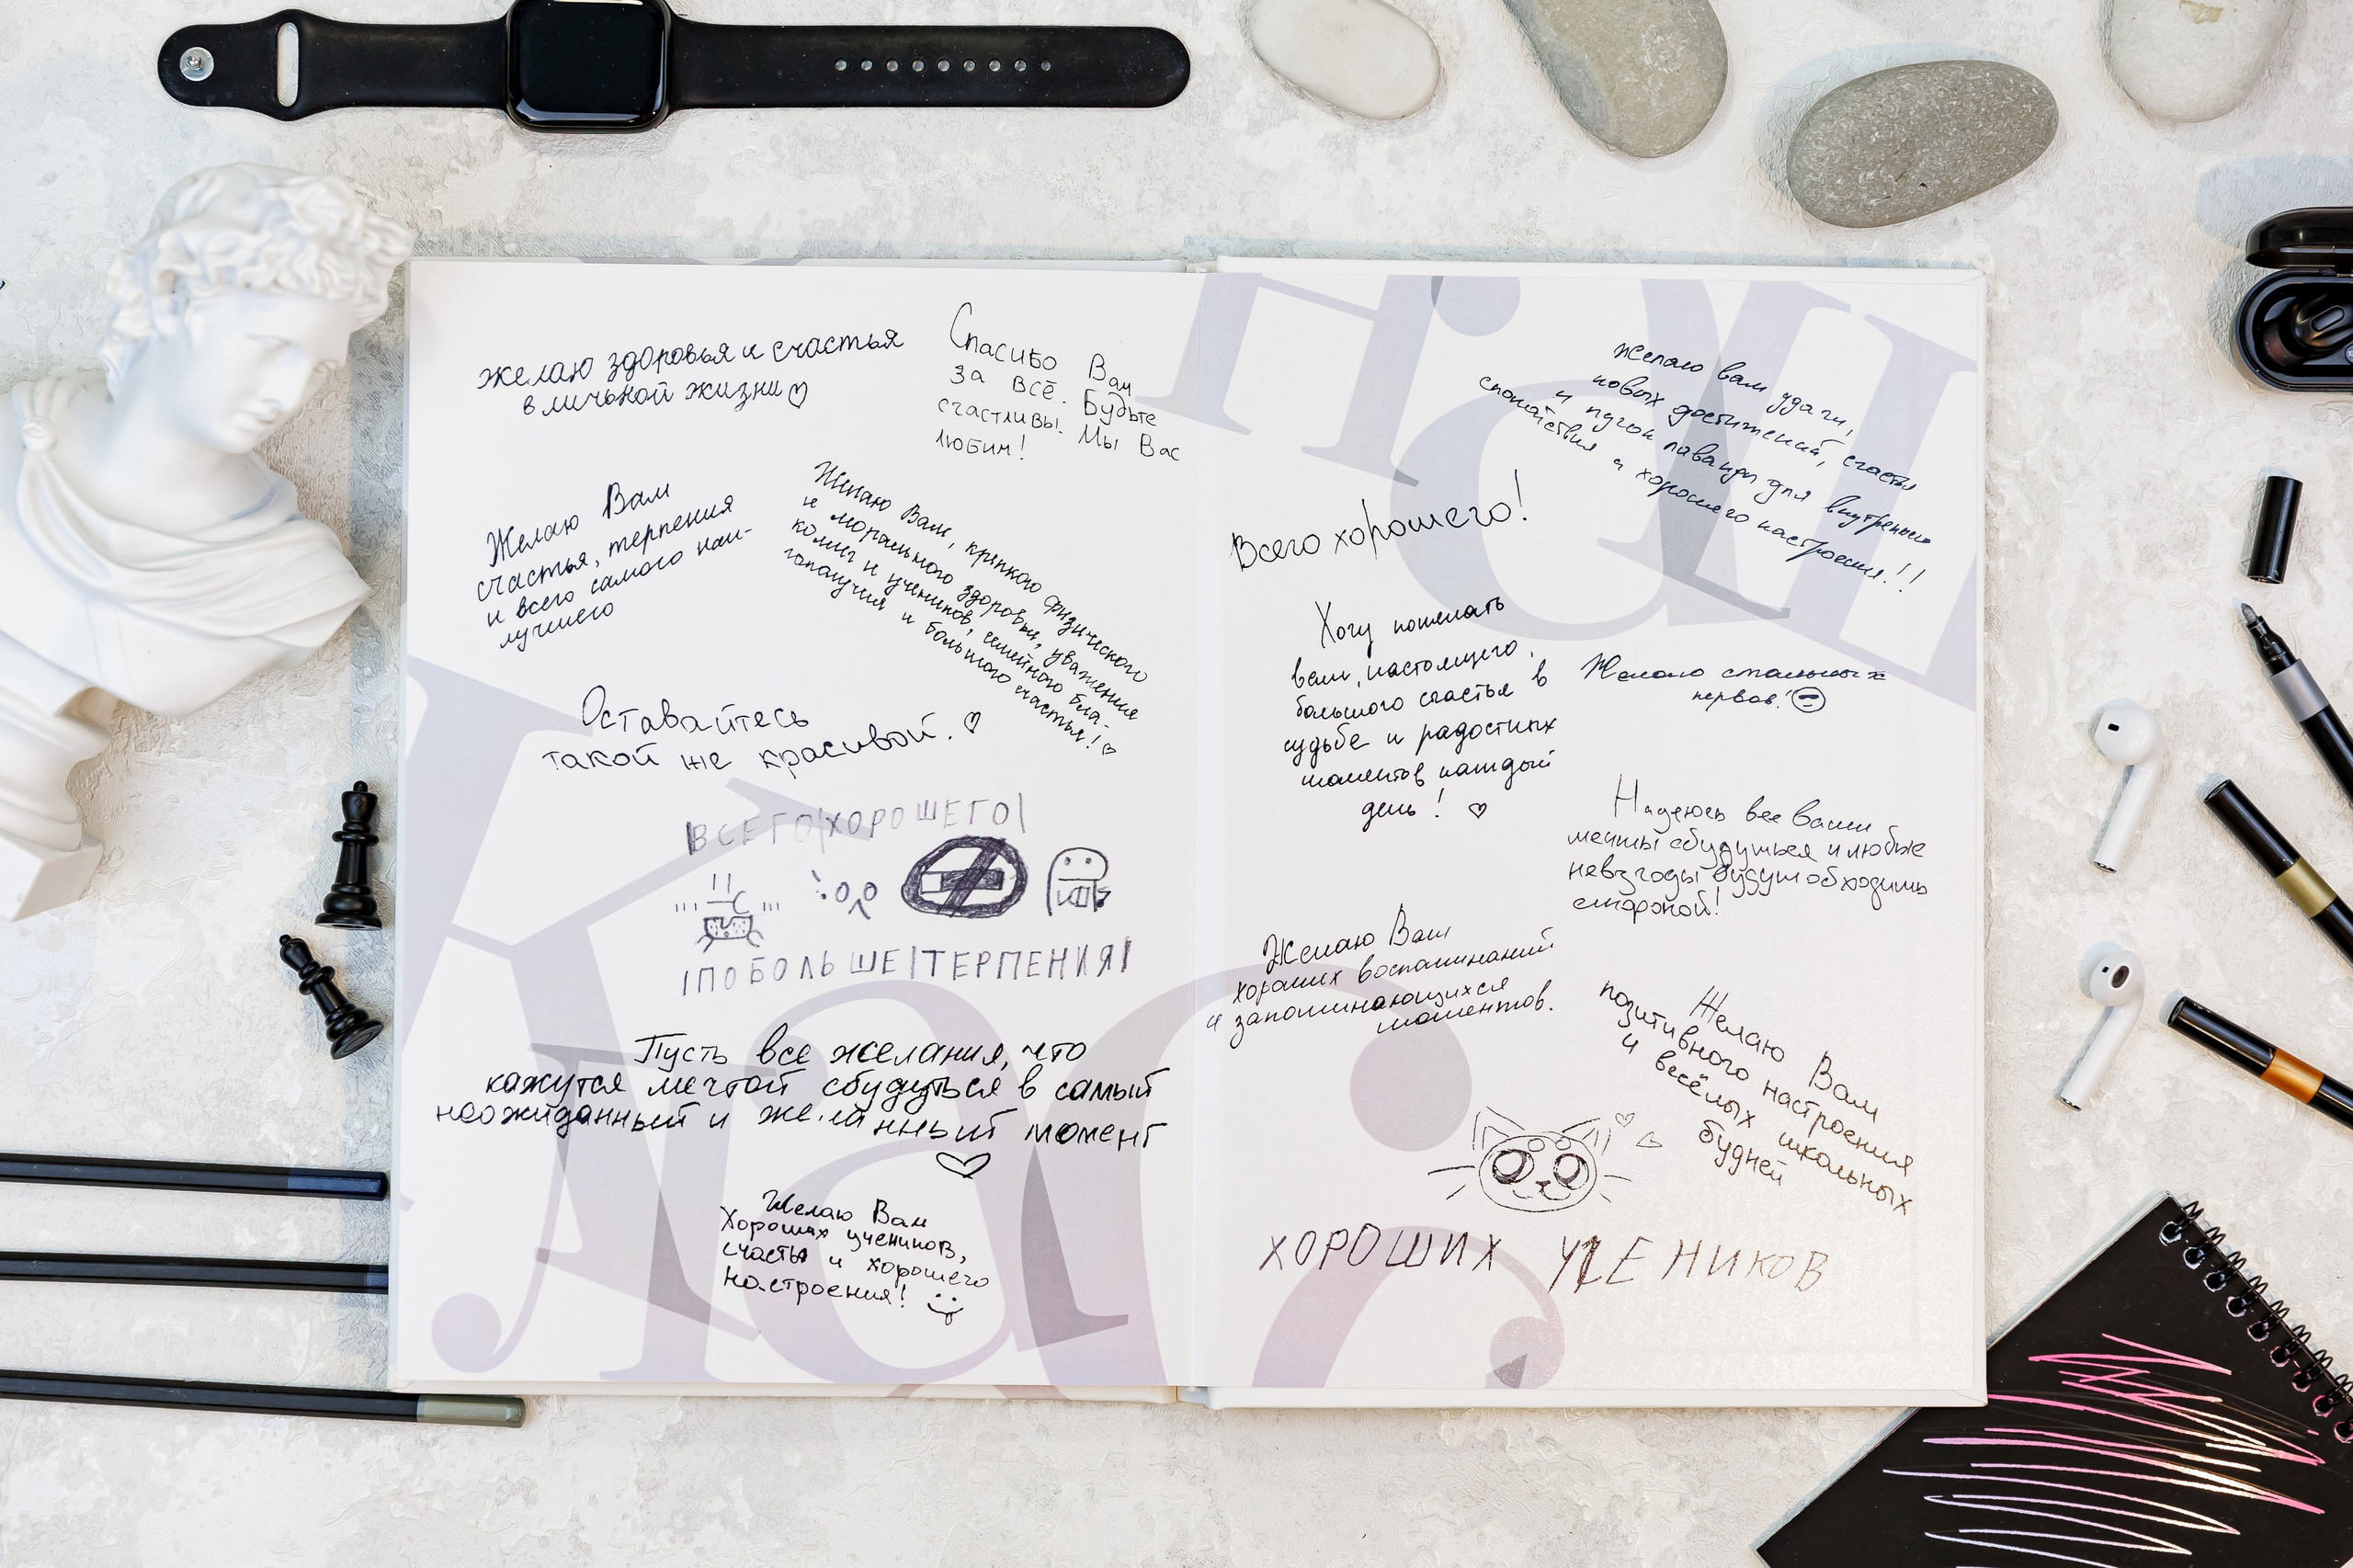 желаю здоровья и счастья
в личьной жизни
Спасибо Вам
за всё. Будьте
счастливы. Мы Вас
любим!
Желаю Вам
счастья, терпения
и всего самого наи-
лучшего
Желаю Вам, крепкого физического
и морального здоровья, уважения
коллег и учеников, семейного бла-
гополучия и большого счастья!
Оставайтесь
такой же красивой.
ВСЕГО ХОРОШЕГО
ПОБОЛЬШЕ ТЕРПЕНИЯ
Пусть все желания, что
кажутся мечтой сбудуться в самый
неожиданный и желанный момент
Желаю Вам
Хороших учеников,
счастья и хорошего
настроения!
Желаю вам удачи,
новых достижений, счастья
и пучок лаванды для внутреннего
спокойствия и хорошего настроения!!
Всего хорошего!
Хочу пожелать
вам, настоящего,
большого счастья в
судьбе и радостных
моментов каждый
день!
Желаю стальных
нервов!
Надеюсь все ваши
мечты сбудуться и любые
невзгоды будут обходить
стороной!
Желаю Вам
хороших воспоминаний
и запоминающихся
моментов.
Желаю Вам
позитивного настроения
и весёлых школьных
будней
ХОРОШИХ УЧЕНИКОВ